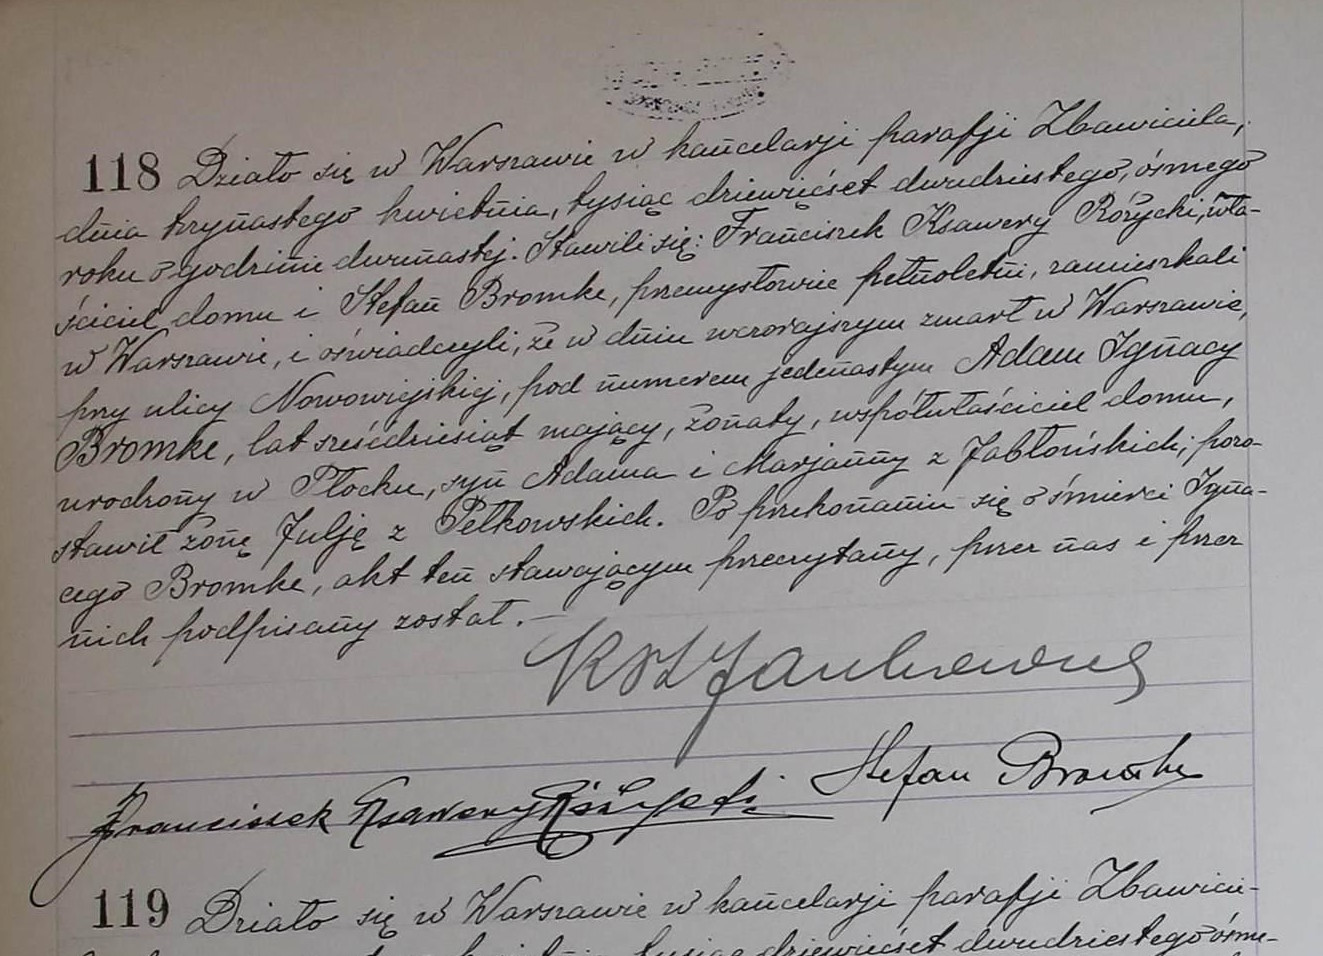 118 Działo się w Warszawie w kancelarji parafji Zbawiciela,
dnia trzynastego kwietnia, tysiąc dziewięćset dwudziestego, ósmego
roku o godzinie dwunastej. Stawili się: Franciszek Ksawery Różycki, wła-
ściciel domu i Stefan Bromke, przemysłowiec pełnoletni, zamieszkali
w Warszawie, i oświadczyli, że w dniu wczorajszym zmarł w Warszawie,
przy ulicy Nowowiejskiej, pod numerem jedenastym Adam Ignacy
Bromke, lat sześćdziesiąt mający, żonaty, współwłaściciel domu,
urodzony w Płocku, syn Adama i Marjanny z Jabłońskich; pozo-
stawił żonę Julję z Pełkowskich. Po przekonaniu się o śmierci Igna-
cego Bromke, akt ten stawającym przeczytany, przez nas i przez
nich podpisany został.—
Stefan Bromke
Franciszek Ksawery Różycki
119 Działo się w Warszawie w kancelarji parafji Zbawici-
tysiąc dziewięćset dwudziestego ósme-